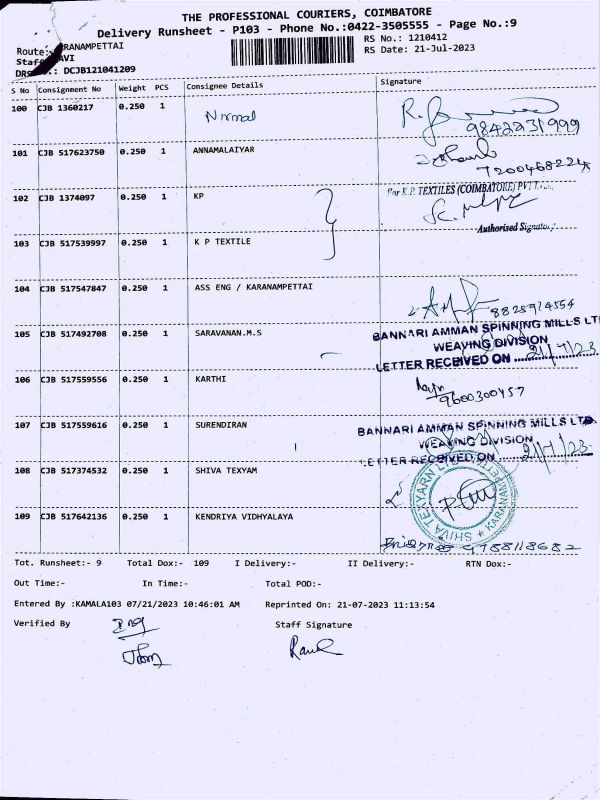 THE PROFESSIONAL COURIERS, COIMBATORE
Delivery Runsheet - P103 - Phone No.:0422-3505555 - Page No.:9
Route: RANAMPETTAI
RS No.: 1210412
Staff AVI
RS Date: 21-Jul-2023
DRS .: DCJB121041209
S No Consignment No Weight PCS Consignee Details Signature
100 CJB 1360217 0.250 1 Normal
9842231999
101 CJB 517623750 0.250 1 ANNAMALAIYAR
102 CJB 1374097 0.250 1 KP
For K.P. TEXTILES (COIMBATORE) PVT
Authorised
103 CJB 517539997 0.250 1 K P TEXTILE
104 CJB 517547847 0.250 1 ASS ENG / KARANAMPETTAI
8825974554
105 CJB 517492708 0.250 1 SARAVANAN.M.S
BANNARI AMMAN SPINNING MILLS LT
WEAVING DIVISION
LETTER RECEIVED ON 21/7/23
106 CJB 517559556 0.250 1 KARTHI
9600300457
107 CJB 517559616 0.250 1 SURENDIRAN
BANNARI AMMAN SPINNING MILLS LTD.
WEAVING DIVISION
LETTER RECEIVED ON 21/7/23
108 CJB 517374532 0.250 1 SHIVA TEXYAM
SHIVA TEXYARN LI
109 CJB 517642136 0.250 1 KENDRIYA VIDHYALAYA
9788118682
Tot. Runsheet:- 9 Total Dox:- 109 I Delivery:- II Delivery:- RTN Dox:-
Out Time:- In Time:- Total POD:-
Entered By :KAMALA103 07/21/2023 10:46:01 AM Reprinted On: 21-07-2023 11:13:54
Verified By Staff Signature